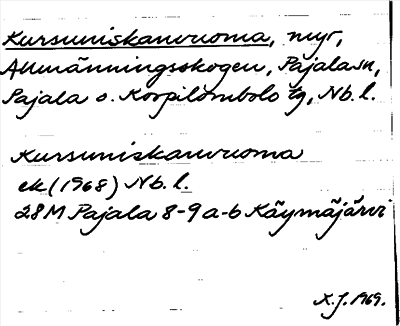 Kursuniskanvuoma, myr,
Allmänningsskogen, Pajala sn,
Pajala o. Korpilombolo tg, Nb. l.
Kursuniskanvuoma
ek (1968) Nb. l.
28M Pajala 8-9 a-b Käymäjärvi
K.J. 1969.